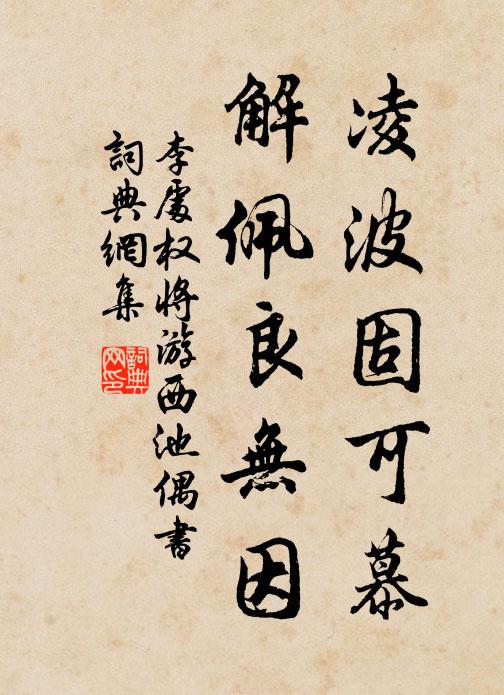 凌波固可慕
解佩良無因
李處权將游西池偶書
詞典網集
詞典
网印